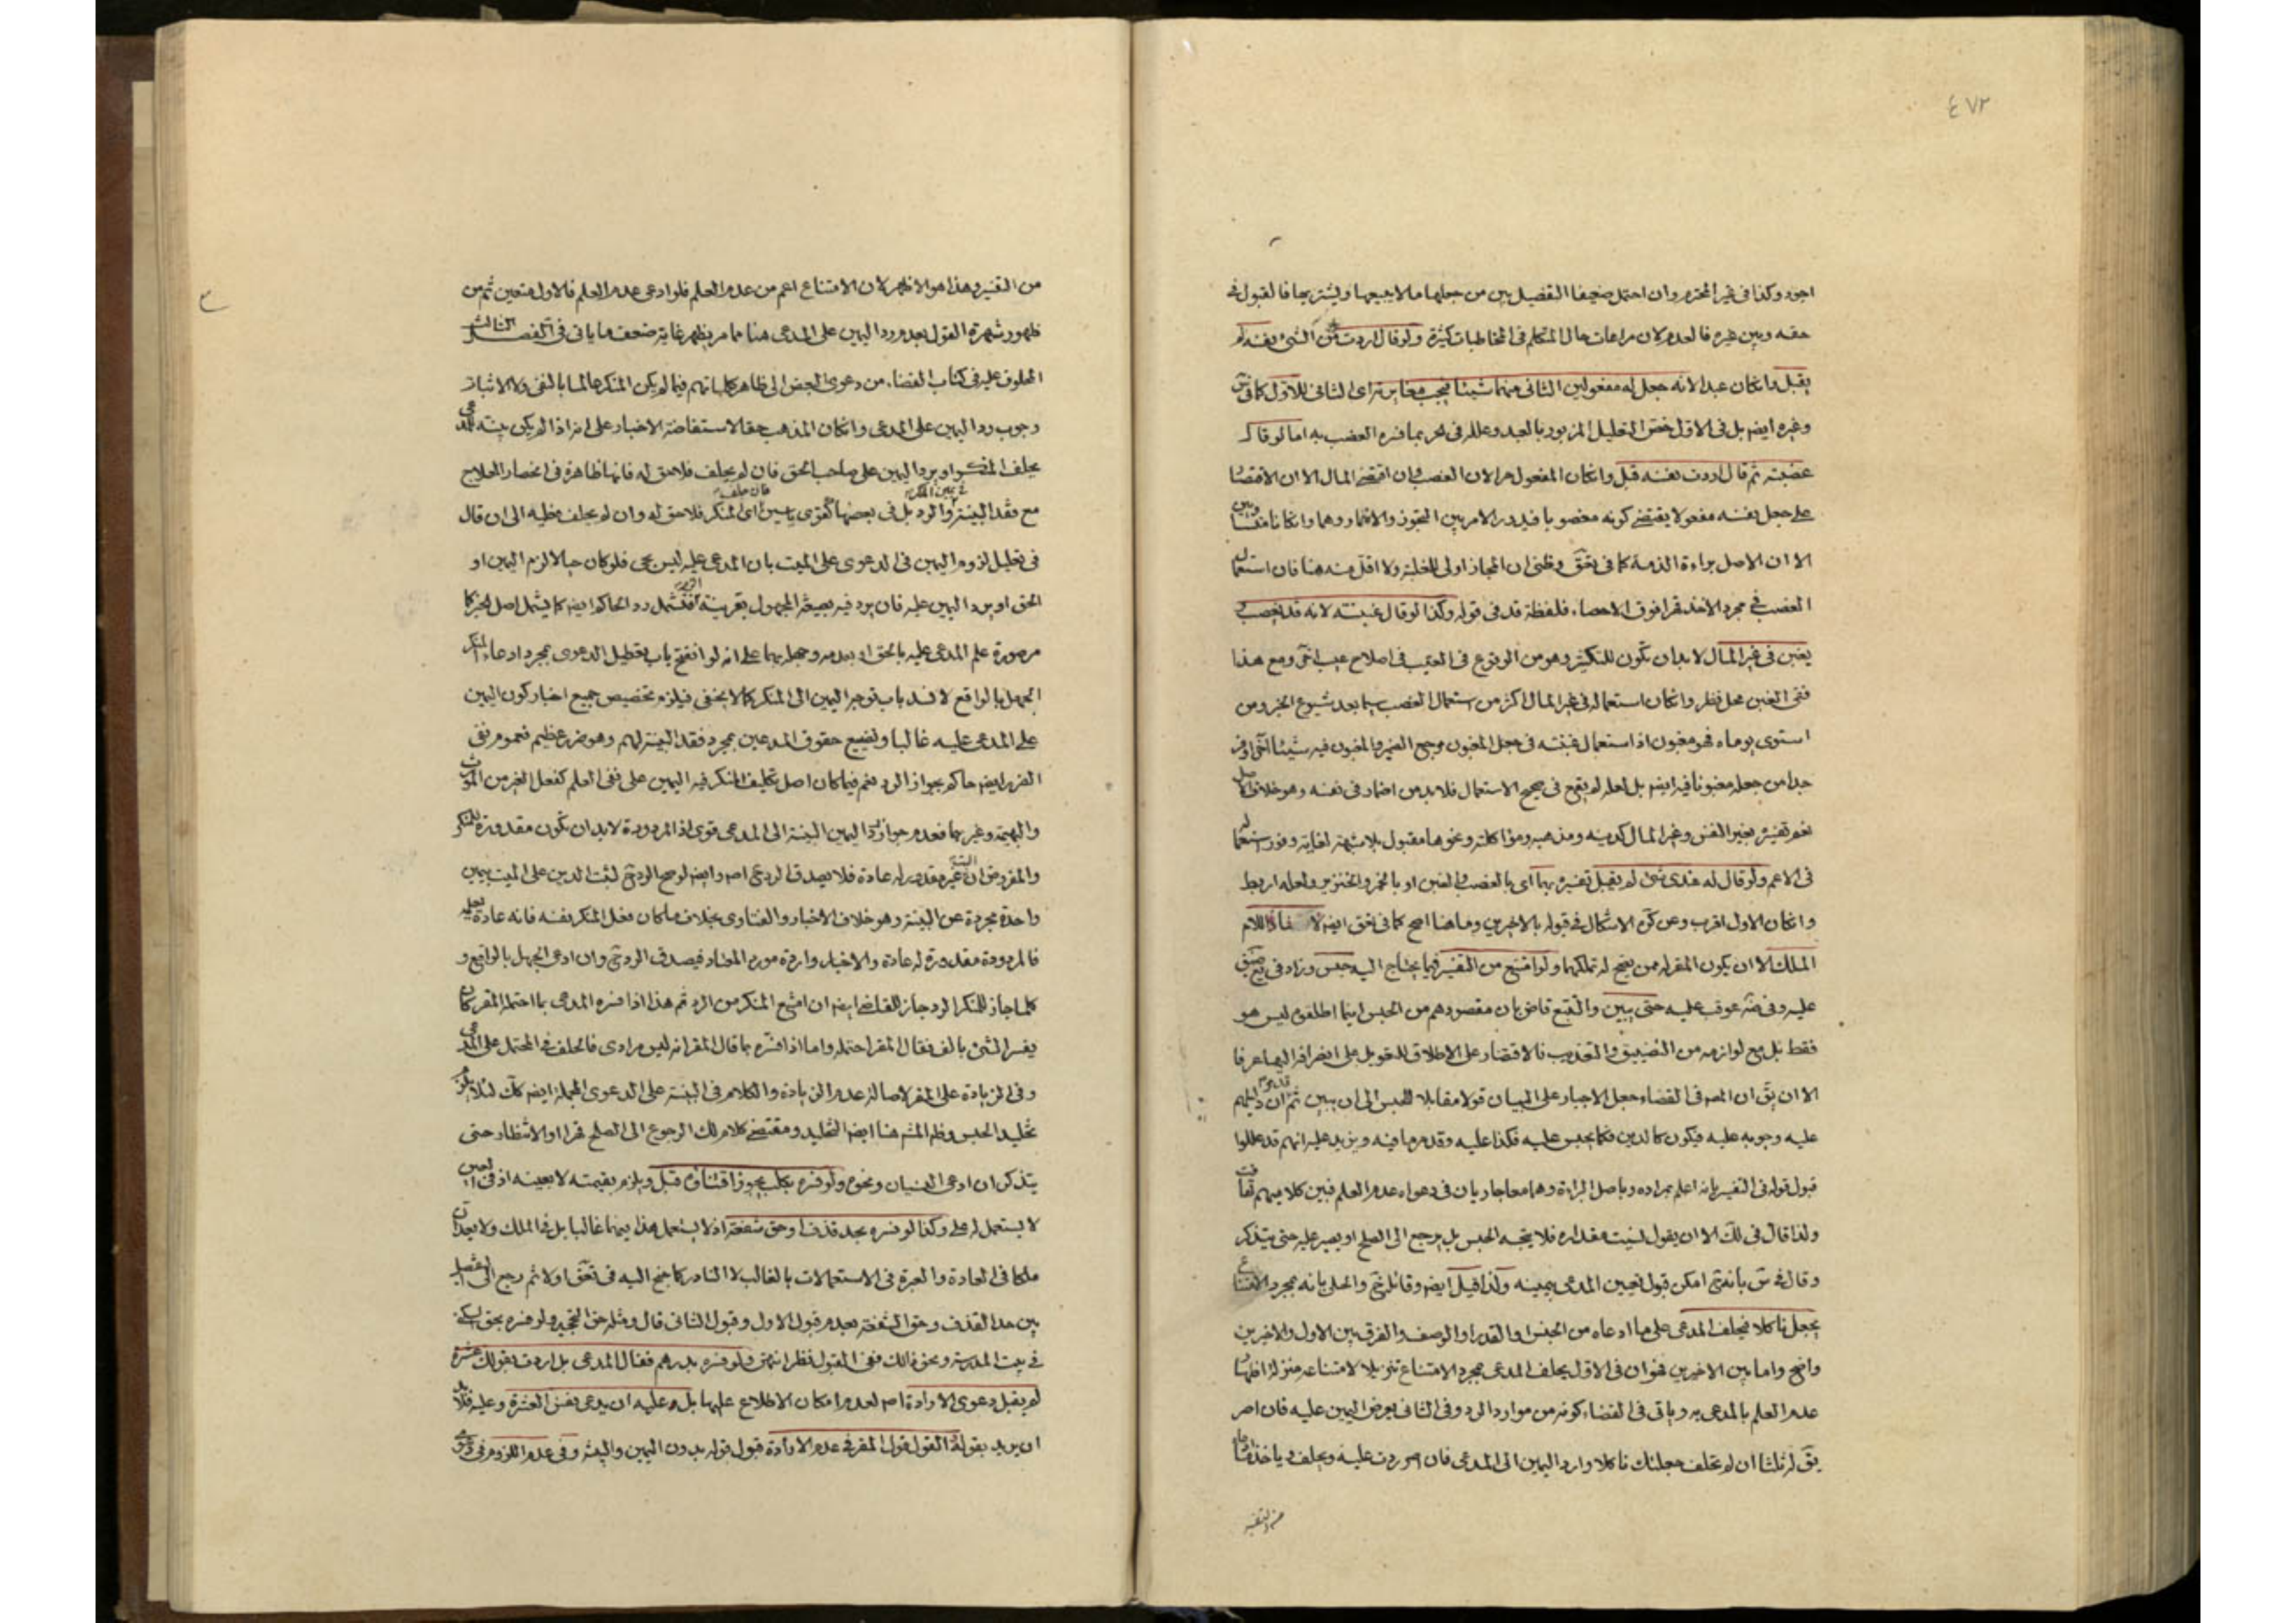 ٤٧٢
اجود وكذا فى غير المحترم وان احتمل ضعيفا التفصيل بين من جعلها مالا يبيعها ويشتريها فالقبول فى
حقه وبين غيره فالعدم لان مراعات حال المتكلم فى المخاطبات كثيرة ولو قال اردت الشئ نفسه لم
يقبل وانكان عبدا لانه جعل له مفعولين الثانى منهما شيئا فيجب مغايرة الثانى للاول كما فى
وغيره ايضا بل فى الاول خص التعليل المزبور بالعبد وعلله فى الحر بما فسره الغصب به اما لو قال
غصبته ثم قال اردت نفسه قبل وانكان المفعول حرا لان الغصب وان اقتضى المال الا ان الاقتضا
على جعل نفسه مفعولا يقتضى كونه مغصوبا فيدور الامر بين التجوز والاضمار وهما وانكانا
الا ان الاصل براءة الذمة كما فى وظنى ان المجاز اولى للغلبة ولا اقل منه هنا فان استعمال
الغصب فى مجرد الاخذ قهرا فوق الاحصاء فلفظة قد فى قوله وكذا لو قال غبنته لانه قد يغصب و
يغبن فى غير المال لابد ان تكون للتكثير وهو من الوقوع فى العيب فى اصلاح عيب انتهى ومع هذا
ففى الغبن محل نظر وانكان استعماله فى غير المال اكثر من استعمال الغصب سيما بعد شيوع الخبر ومن
استوى يوماه فهو مغبون اذ استعمال غبنته فى جعل المغبون مرجع الضمير والمغبون فيه شيئا اخر
جدا من جعله مغبونا فيه ايضا بل لعله لم يقع فى صحيح الاستعمال فلابد من اضمار فى نفسه وهو خلاف الاصل
نعم تفسيره بغير النفس وغير المال كدينه ومذهبه ومؤاكلته ونحوها مقبول بلا شبهة لغاية وفور استعماله
فى الاعم ولو قال له عندى شئ لم يقبل تفسيره بهما اى بالغصب والغبن او بالخمر والخنزير ولعله اربط
وانكان الاول اقرب وعن الاشكال فى قوله بالاخيرين وماهنا اصح كما فى ايضا اللام
الملك الا ان يكون المقر له ممن يصح له تملكهما ولو امتنع من التفسير فيما يحتاج اليه حبس وزاد فى ضيق
عليه وفى عوقب عليه حتى يبين والتتبع قاض بان مقصودهم من الحبس اينما اطلقوه ليس هو
فقط بل مع لوازمه من التضييق والتعذيب فالاقتصار على الاطلاق للتعويل على انصرافه اليها عرفا
الا ان يق ان المصنف فى القضاء جعل الاجبار على البيان قولا مقابلا للحبس الى ان يبين ثم ان دليلهم
عليه وجوبه عليه فيكون كالدين فكما يحبس عليه فكذا عليه وقد مر ما فيه ويزيد عليه انهم قد عللوا
قبول قوله فى التفسير بانه اعلم بمراده وباصل البراءة وهما معا جاريان فى دعواه عدم العلم فبين كلاميهم
ولذا قال فى لك الا ان يقول نسيت مقداره فلا يتجه الحبس بل يرجع الى الصلح او يصبر عليه حتى يتذكر
وقال فى س بانه امكن قبول تعيين المدعى بيمينه وكذا قيل ايضا وقائله والحلى بانه بمجرد الامتناع
يجعل ناكلا فيحلف المدعى على ما ادعاه من الجنس او القدر او الوصف والفرق بين الاول والاخيرين
واضح واما بين الاخيرين فهو ان فى الاول يحلف المدعى بمجرد الامتناع تنزيلا لامتناعه منزلة اظهار
عدم العلم بالمدعى به وياتى فى القضاء كونه من موارد الرد وفى الثانى يعرض اليمين عليه فان اصر
يق له ثلثا ان لم تحلف جعلتك ناكلا وارد اليمين الى المدعى فان اصر ردت عليه ويحلف وياخذ
من التفسير
من التفسير وهذا هو الاظهر لان الامتناع اعم من عدم العلم فلو ادعى عدم العلم فالاول متعين ثم من
ظهور شهرة القول بعدم رد اليمين على المدعى هنا مما مر يظهر غاية ضعف ما ياتى فى الفصل الثالث
المحلوف عليه فى كتاب القضاء من دعوى البعض الى ظاهر كلماتهم فيما لم يكن المنكر عالما بالنفى ولا الاثبات
وجوب رد اليمين على المدعى وانكان المذهب حقا لاستفاضة الاخبار على انه اذا لم يكن بينة للمدعى
يحلف المنكر او يرد اليمين على صاحب الحق فان لم يحلف فلا حق له فانها ظاهرة فى انحصار العلاج
مع فقد البينة والرد بل فى بعضها اى المنكر فلا حق له وان لم يحلف فعليه الى ان قال
فى تعليل لزوم اليمين فى الدعوى على الميت بان المدعى عليه ليس بحى فلو كان حيا لالزم اليمين او
الحق او يرد اليمين عليه فان يرد فيه بصيغة المجهول بقرينة فتشمل رد الحاكم ايضا كما يشمل اصل الخبر كا
من صورة علم المدعى عليه بالحق او بعدمه وجهله بهما على انه لو انفتح باب تعطيل الدعوى بمجرد ادعاء المنكر
الجهل بالواقع لانسد باب توجه اليمين الى المنكر كما لا يخفى فيلزم تخصيص جميع اخبار كون اليمين
على المدعى عليه غالبا وتضييع حقوق المدعين بمجرد فقد البينة لهم وهو ضرر عظيم فعموم نفى
الضرر ايضا حاكم بجواز الرد نعم فيما كان اصل تكليف المنكر فيه اليمين على نفى العلم كفعل الغير من المورث
والبهيمة وغيرهما فعدم جواز رد اليمين البتة الى المدعى قوى اذ المردودة لابد ان تكون مقدورة للمنكر
والمفروض ان غيره مقدور له عادة فلا يصدق الرد اصلا وايضا لو صح الرد لثبت الدين على الميت بيمين
واحدة مجردة عن البينة وهو خلاف الاخبار والفتاوى بخلاف ما كان فعل المنكر نفسه فانه عادة يعلمه
فالمردودة مقدورة له عادة والاخبار واردة مورد المعتاد فيصدق الرد وان ادعى الجهل بالواقع و
كلما جاز للمنكر الرد جاز للقاضى ايضا ان امتنع المنكر من الرد ثم هذا اذا فسره المدعى بما احتمله المقر كان
يفسر الشئ بالف فقال المقر احتمله واما اذا فسره بما قال المقر انه ليس مرادى فالحلف فى المحتمل على المدعى
وفى الزيادة على المقر لاصالة عدم الزيادة والكلام فى البينة على الدعوى المجملة ايضا كك لئلا يلزم
تخليد الحبس وظاهر المتن هنا ايضا التخليد ومقتضى كلام لك الرجوع الى الصلح قهرا او الانتظار حتى
يتذكر ان ادعى النسيان ونحوه ولو فسره بكلب يجوز اقتناؤه قبل ويلزم بقيمته لا بعينه اذ فى
لا يستعمل له على وكذا لو فسره بحد قذف او حق شفعة اذ لا يستعمل هذا بينهما غالبا بل فى الملك ولا يعدان
ملكا فى العادة والعبرة فى الاستعمالات بالغالب لا النادر كما جنح اليه فى اولا ثم رجع الى التفصيل
بين حد القذف وحق الشفعة بعدم قبول الاول وقبول الثانى قال ومثله حق التحجير ولو فسره بحق السكنى
فى بيت المدرسة ونحو ذلك ففى القبول نظر انتهى ولو فسره بدرهم فقال المدعى بل اردت بقولك عشرة
لم يقبل دعوى الارادة اصلا لعدم امكان الاطلاع عليها بل عليه ان يدعى نفس العشرة وعليه فلابد
ان يريد بقوله القول قول المقر فى عدم الارادة قبول قوله بدون اليمين والبينة وفى عدم اللزوم